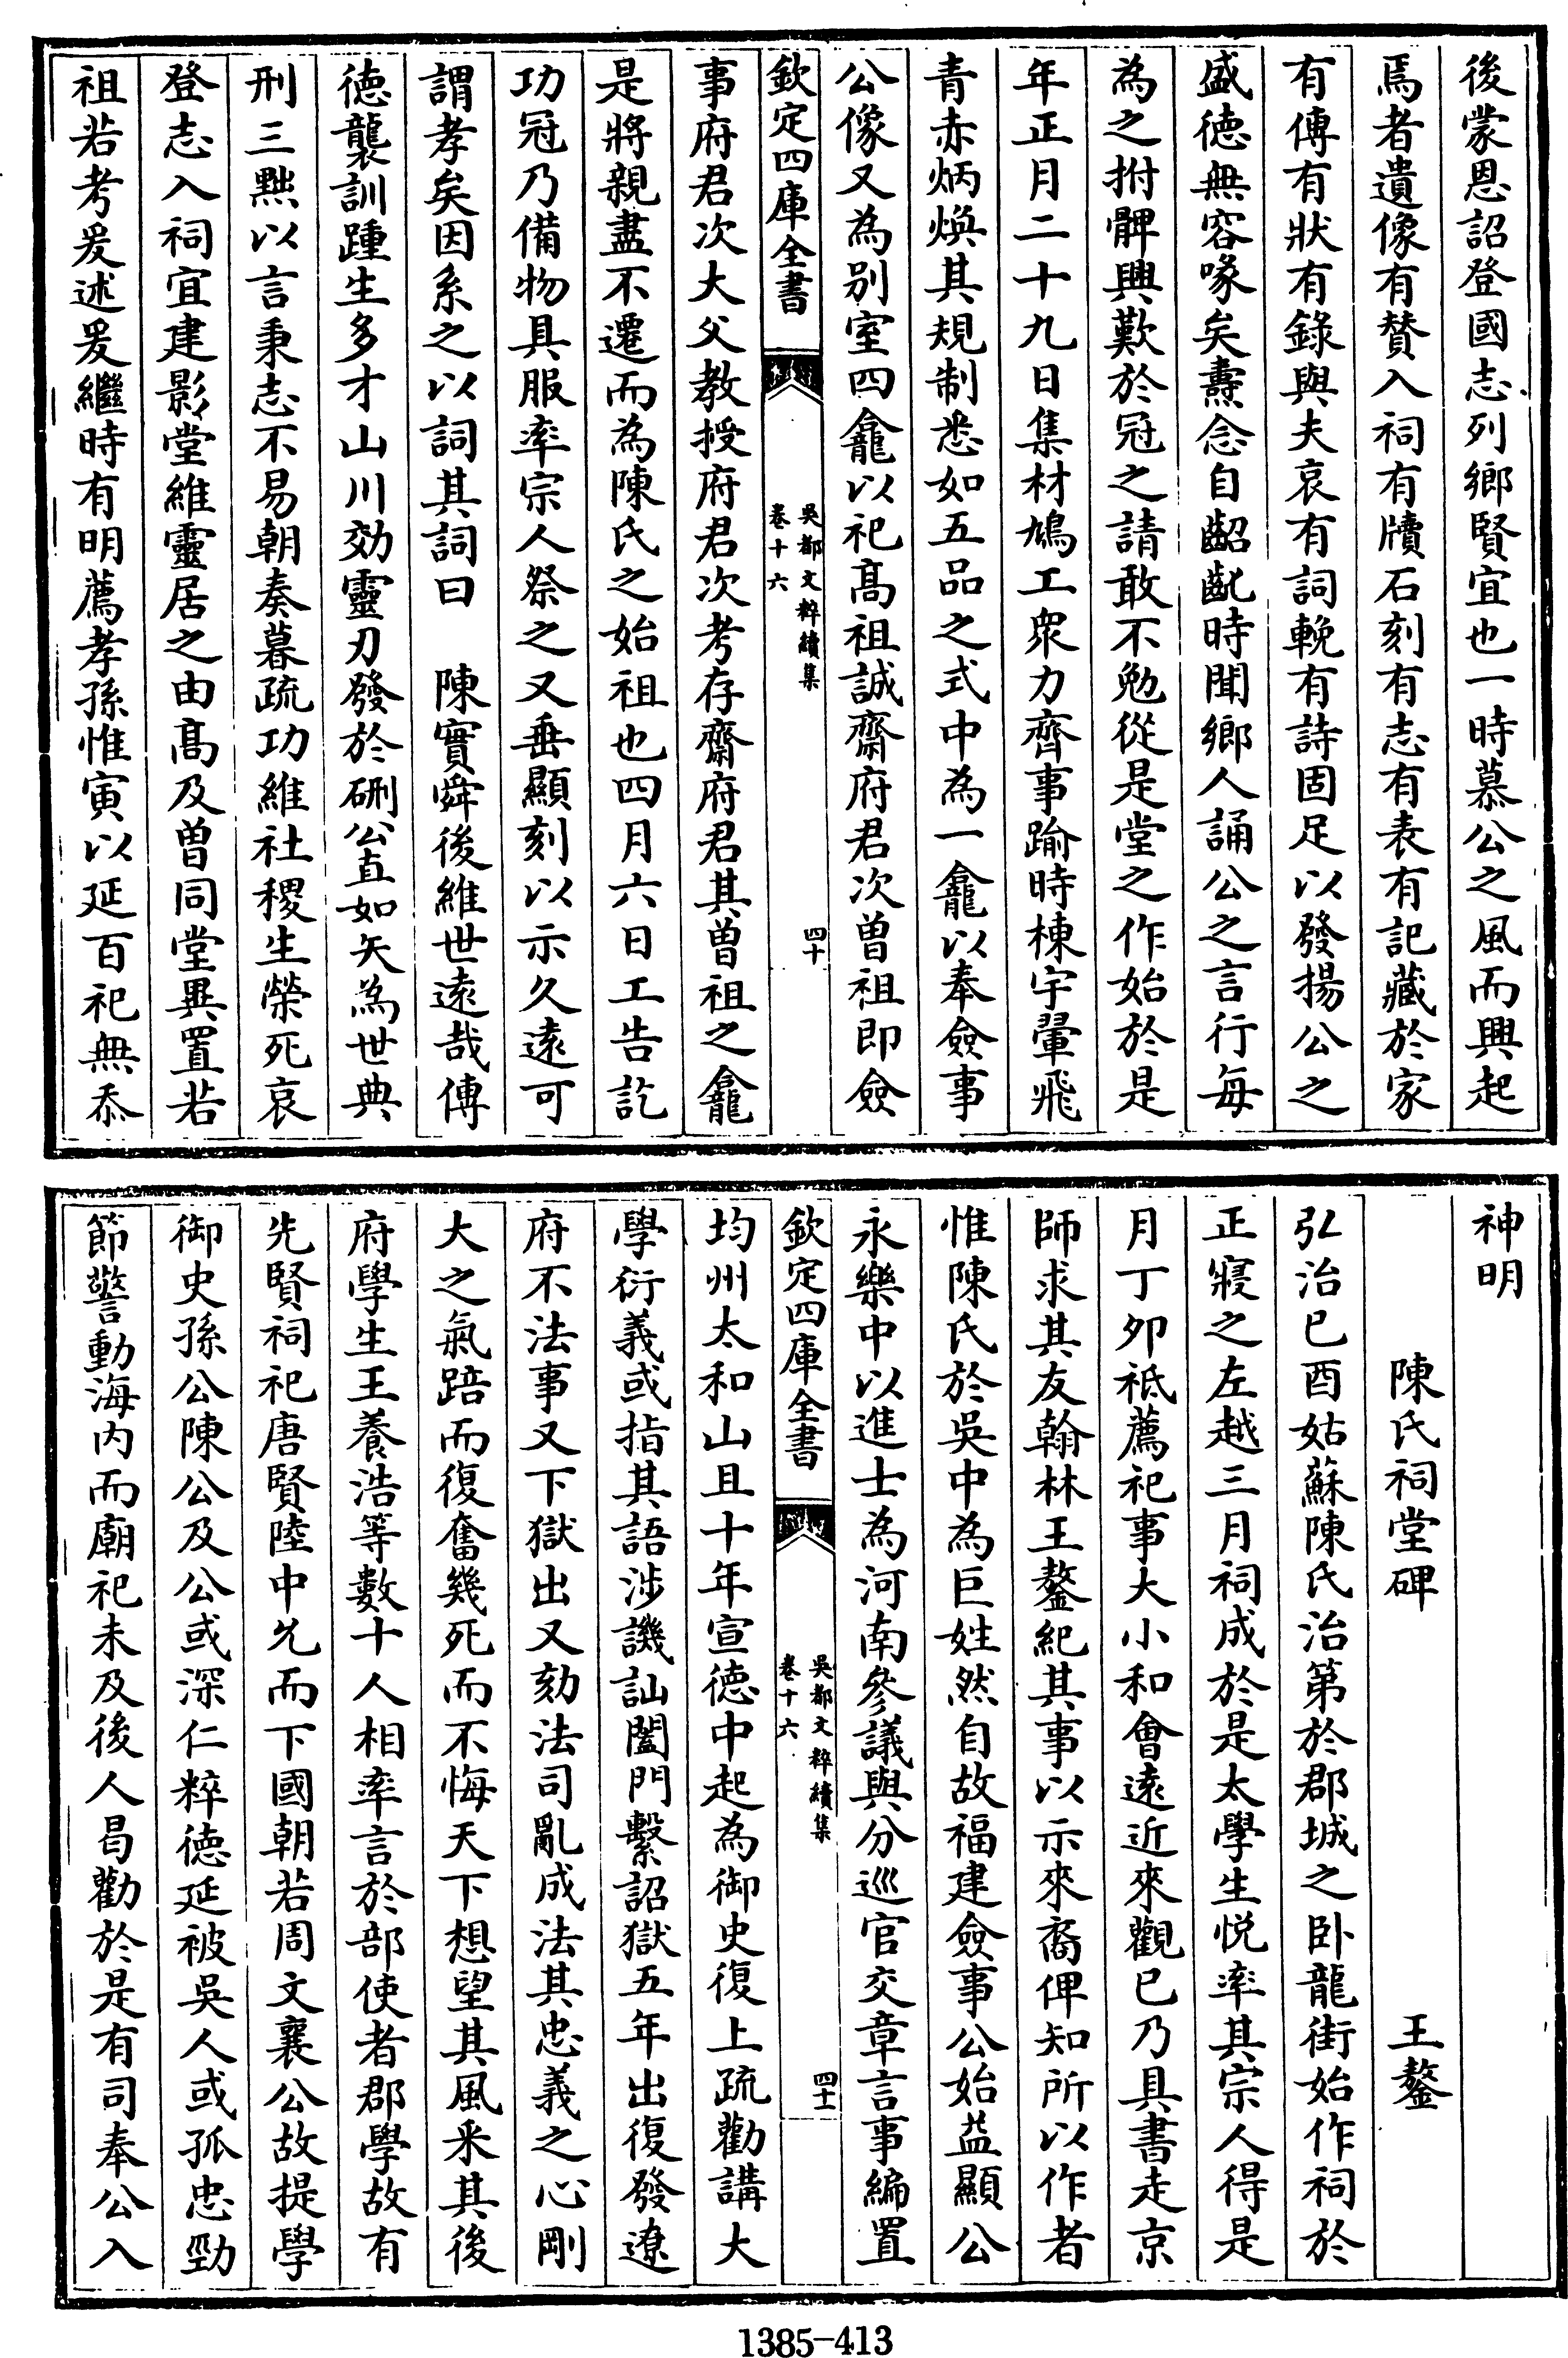 後蒙恩詔登國志列鄉賢宜也一時慕公之風而興起
焉者遺像有賛入祠有牘石刻有志有表有記藏於家
有傳有狀有錄與夫哀有詞輓有詩固足以發揚公之
盛徳無容喙矣燾念自齠齔時聞鄉人誦公之言行每
為之拊髀興歎於冠之請敢不勉從是堂之作始於是
年正月二十九日集材鳩工衆力齊事踰時棟宇翬飛
青赤炳煥其規制悉如五品之式中為一龕以奉僉事
公像又為别室四龕以祀髙祖誠齋府君次曽祖即僉
欽定四庫全書
吳都文粹續集
卷十六
四十
事府君次大父教授府君次考存齋府君其曽祖之龕
是將親盡不遷而為陳氏之始祖也四月六日工告訖
功冠乃備物具服率宗人祭之又垂顯刻以示久逺可
謂孝矣因系之以詞其詞曰 陳實舜後維世逺哉傳
徳襲訓踵生多才山川効靈刃發於硎公直如矢為世典
刑三黜以言秉志不易朝奏暮疏功維社稷生榮死哀
登志入祠宜建影堂維靈居之由髙及曽同堂異置若
祖若考爰述爰繼時有明薦孝孫惟寅以延百祀無忝
神明
陳氏祠堂碑 王鏊
弘治已酉姑蘇陳氏治第於郡城之卧龍街始作祠於
正寢之左越三月祠成於是太學生悦率其宗人得是
月丁夘祗薦祀事大小和會逺近來觀已乃具書走京
師求其友翰林王鏊紀其事以示來裔俾知所以作者
惟陳氏於吳中為巨姓然自故福建僉事公始益顯公
永樂中以進士為河南參議與分巡官交章言事編置
欽定四庫全書
吳都文粹續集
卷十六
四十一
均州太和山且十年宣徳中起為御史復上疏勸講大
學衍義或指其語涉譏訕闔門繫詔獄五年出復發遼
府不法事又下獄出又劾法司亂成法其忠義之心剛
大之氣踣而復奮幾死而不悔天下想望其風采其後
府學生王養浩等數十人相率言於部使者郡學故有
先賢祠祀唐賢陸中允而下國朝若周文襄公故提學
御史孫公陳公及公或深仁粹徳延被吳人或孤忠勁
節警動海内而廟祀未及後人曷勸於是有司奉公入
1385-413